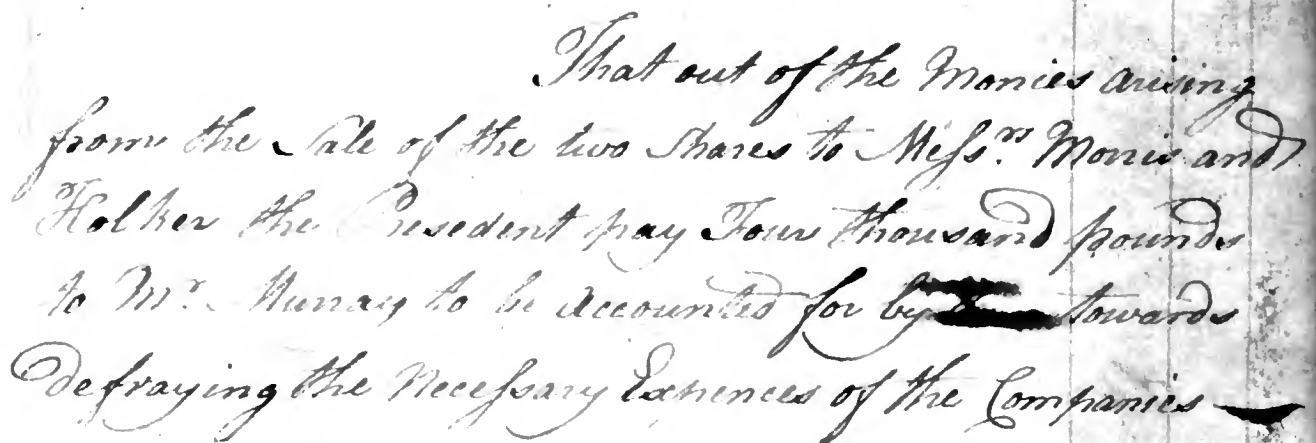 That out of the Monies arising
from the Sale of the two Shares to Messrs. Morris and
Holker the Presedent pay Four thousand pounds
to Mr. Murray to be Accounted for by towards
defraying the Necessary Expences of the Companies